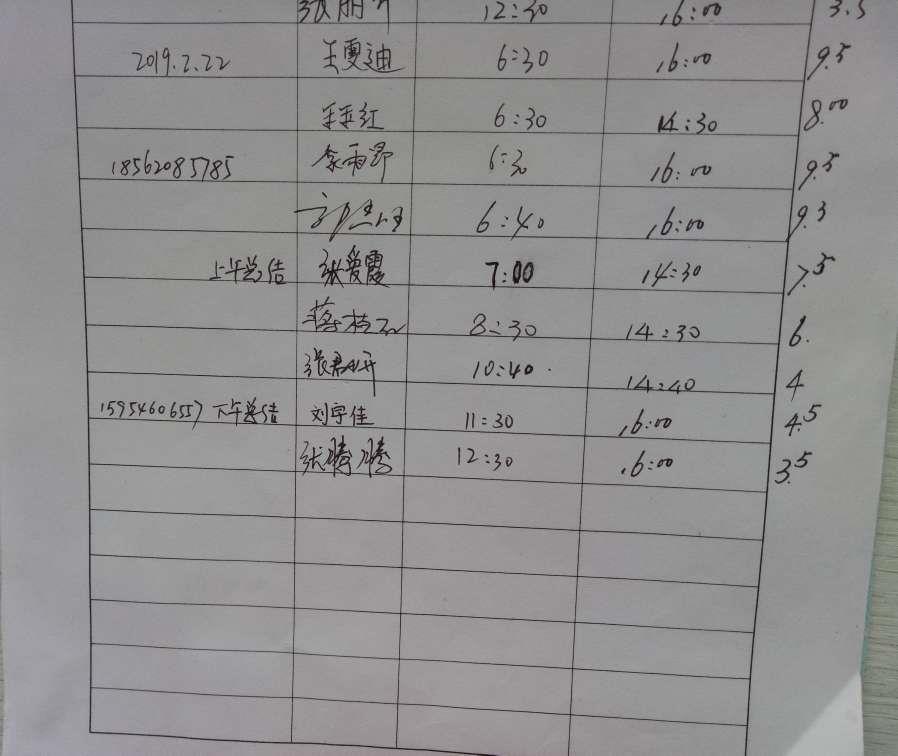 12:30 16:00 3.5
2019.2.22 王雯迪 6:30 16:00 9.5
6:30 14:30 8.00
18562085785 李雨郡 6:30 16:00 9.5
6:40 16:00 9.3
上午总结 张爱霞 7:00 14:30 7.5
8:30 14:30 6.
10:40 14:40 4
15954606557 下午总结 刘宇佳 11:30 16:00 4.5
张腾腾 12:30 16:00 3.5